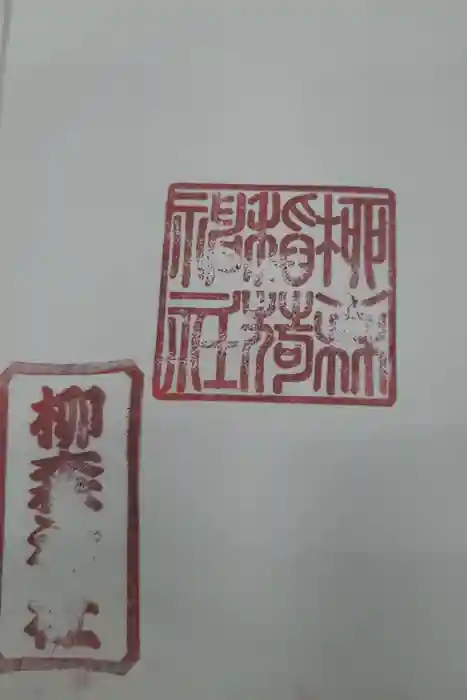 柳森
稲荷
神社
柳森社